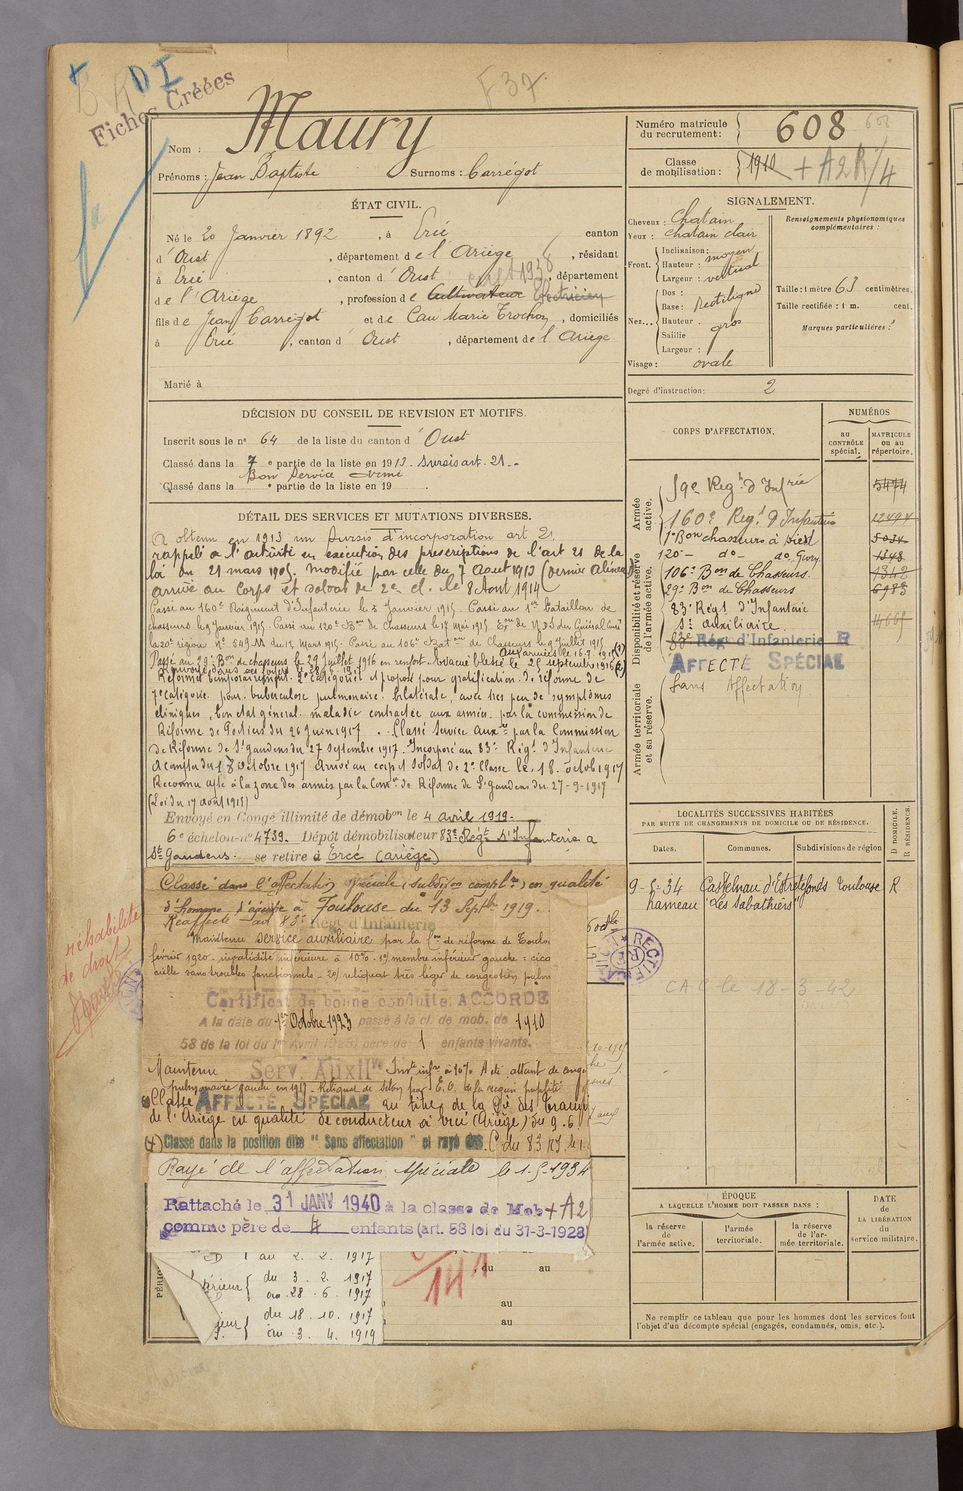 DI
Fiches Créées
F37
Nom : Maury
Prénoms : Jean Baptiste Surnoms : Carrégot
Numéro matricule du recrutement : 608
Classe de mobilisation : 1910 + A2R/4
ÉTAT CIVIL.
Né le 20 Janvier 1892, à Ercé canton
d'Oust, département de l'Ariège, résidant
à Ercé, canton d'Oust, département
de l'Ariège, profession de Cultivateur Electricien
fils de Jean Carrégot et de Cau Marie Trochon, domiciliés
à Ercé, canton d'Oust, département de l'Ariège
Marié à
SIGNALEMENT.
Cheveux : Chatain
Yeux : chatain clair
Front. Inclinaison :
Hauteur : moyen
Largeur : vertical
Nez... Dos :
Base : Rectiligne
Hauteur :
Saillie gros
Largeur :
Visage : ovale
Renseignements physionomiques complémentaires :
Taille : 1 mètre 63 centimètres.
Taille rectifiée : 1 m. cent.
Marques particulières :
Degré d'instruction : 2
DÉCISION DU CONSEIL DE REVISION ET MOTIFS.
Inscrit sous le n° 64 de la liste du canton d'Oust
Classé dans la 7e partie de la liste en 1913. Sursis art. 21.
Bon Service armé
Classé dans la e partie de la liste en 19 .
DÉTAIL DES SERVICES ET MUTATIONS DIVERSES.
A obtenu en 1913 un sursis d'incorporation art 21
rappelé à l'activité en exécution des prescriptions de l'art 21 de la
loi du 21 mars 1905, modifié par celle du 7 Aout 1913 (dernier Alinéa)
arrivé au Corps et soldat de 2e cl. le 8 Aout 1914
Passé au 160e Régiment d'Infanterie le 5 Janvier 1915. Passé au 1er Bataillon de
chasseurs le 9 Janvier 1915. Passé au 120e Bon de chasseurs le 17 mai 1915
Passé au 106e Bataillon de Chasseurs le 9 Juillet 1915
Passé au 29e Bon de chasseurs le 29 Juillet 1916 en renfort. Evacué blessé le 25 septembre 1916
Réformé temporairement 2e catégorie et proposé pour gratification de réforme de
7e catégorie pour tuberculose pulmonaire bilatérale, avec très peu de symptômes
cliniques, bon état général. maladie contractée aux armées par la commission de
Réforme de Poitiers du 26 Juin 1917. Classé Service Auxre par la Commission
de Réforme de St Gaudens du 27 Septembre 1917. Incorporé au 83e Régt d'Infanterie
A compter du 18 octobre 1917 Arrivé au corps et Soldat de 2e Classe le 18 octob 1917
Reconnu apte à la zone des armées par la Comon de Réforme de St Gaudens du 27-9-1917
(Loi du 17 août 1915)
Envoyé en Congé illimité de démobon le 4 avril 1919.
6e échelon n° 4739. Dépôt démobilisateur 83e Régt d'Infanterie a
St Gaudens. se retire à Ercé (Ariège)
Classé dans l'affectation spéciale (subdion complre) en qualité
d'homme d'équipe à Toulouse du 13 Septbre 1919.
Réaffecté au 83e Régt d'Infanterie
Maintenu service auxiliaire par la Con de réforme de Toulou
février 1920. invalidité inférieure à 10% 1°) membre inférieur gauche : cica
cielle sans troubles fonctionnels - 2°) reliquat très léger de congestion pulm
Certificat de bonne conduite ACCORDÉ
A la date du 1er Octobre 1923 passé à la cl. de mob. de 1910
58 de la loi du 1er Avril 1923, père de 1 enfants vivants.
Maintenu Serv. Auxilre
pulmonaire gauche en 1917
Classé AFFECTÉ SPÉCIAL au titre de la Cie des Tramw
de l'Ariège en qualité de conducteur à Ercé (Ariège) du 9.6.
(+) Classé dans la position dite "Sans affectation" et rayé des C. du 83 RI. le 1
Rayé de l'affectation spéciale le 1-5-1934
Rattaché le 31 JANV 1940 à la classe de Mob + A2
comme père de 4 enfants (art. 58 loi du 31-3-1928)
réhabilité
de droit
1 au 2. 2. 1917
érieur du 3. 2. 1917
au 28. 6. 1917
jeur du 18. 10. 1917
au 3. 4. 1919
, du au
au
au
CORPS D'AFFECTATION.
NUMÉROS
au CONTRÔLE spécial.
MATRICULE ou au répertoire.
Armée active.
Disponibilité et réserve de l'armée active.
Armée territoriale et sa réserve.
59e Régt d'Infrie 5474
160e Regt d'Infanterie
1er Bon chasseurs à pied
120e - do - do
106e Bon de Chasseurs. 1342
29e Bon de Chasseurs
83e Régt d'Infanterie
S. auxiliaire
83e Rég. d'Infanterie R
AFFECTÉ SPÉCIAL
Sans Affectation
LOCALITÉS SUCCESSIVES HABITÉES
PAR SUITE DE CHANGEMENTS DE DOMICILE OU DE RÉSIDENCE.
Dates. Communes. Subdivisions de région D DOMICILE. R RÉSIDENCE.
9-5-34 Castelnau d'Estretefonds Toulouse R
hameau "Les Sabathiers"
CAC le 18-3-42
ÉPOQUE
A LAQUELLE L'HOMME DOIT PASSER DANS :
la réserve de l'armée active.
l'armée territoriale.
la réserve de l'armée territoriale.
DATE de LA LIBÉRATION du service militaire.
Ne remplir ce tableau que pour les hommes dont les services font
l'objet d'un décompte spécial (engagés, condamnés, omis, etc.).